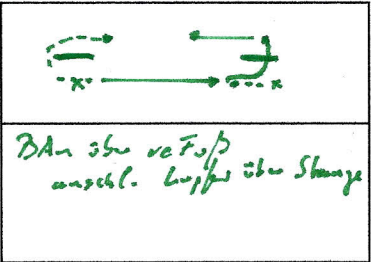 BAn über re Fuß
anschl. Lupfer über Stange